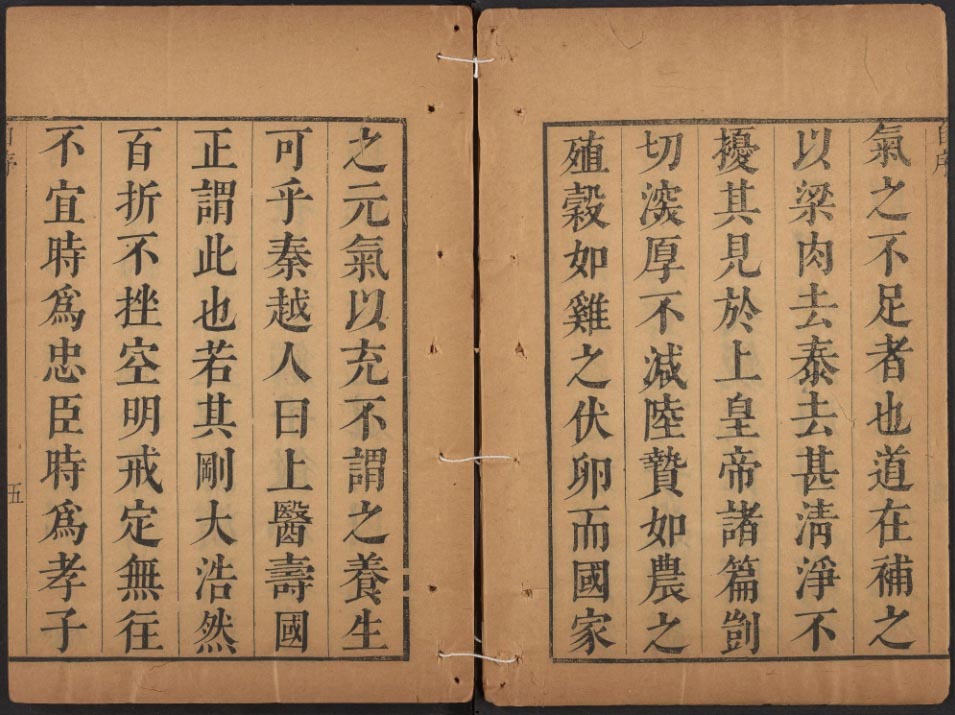 自序
氣之不足者也道在補之
以梁肉去泰去甚清淨不
擾其見於上皇帝諸篇剴
切深厚不減陸贄如農之
殖穀如雞之伏卵而國家
之元氣以充不謂之養生
可乎秦越人曰上醫壽國
正謂此也若其剛大浩然
百折不挫空明戒定無往
不宜時爲忠臣時爲孝子
自序
五